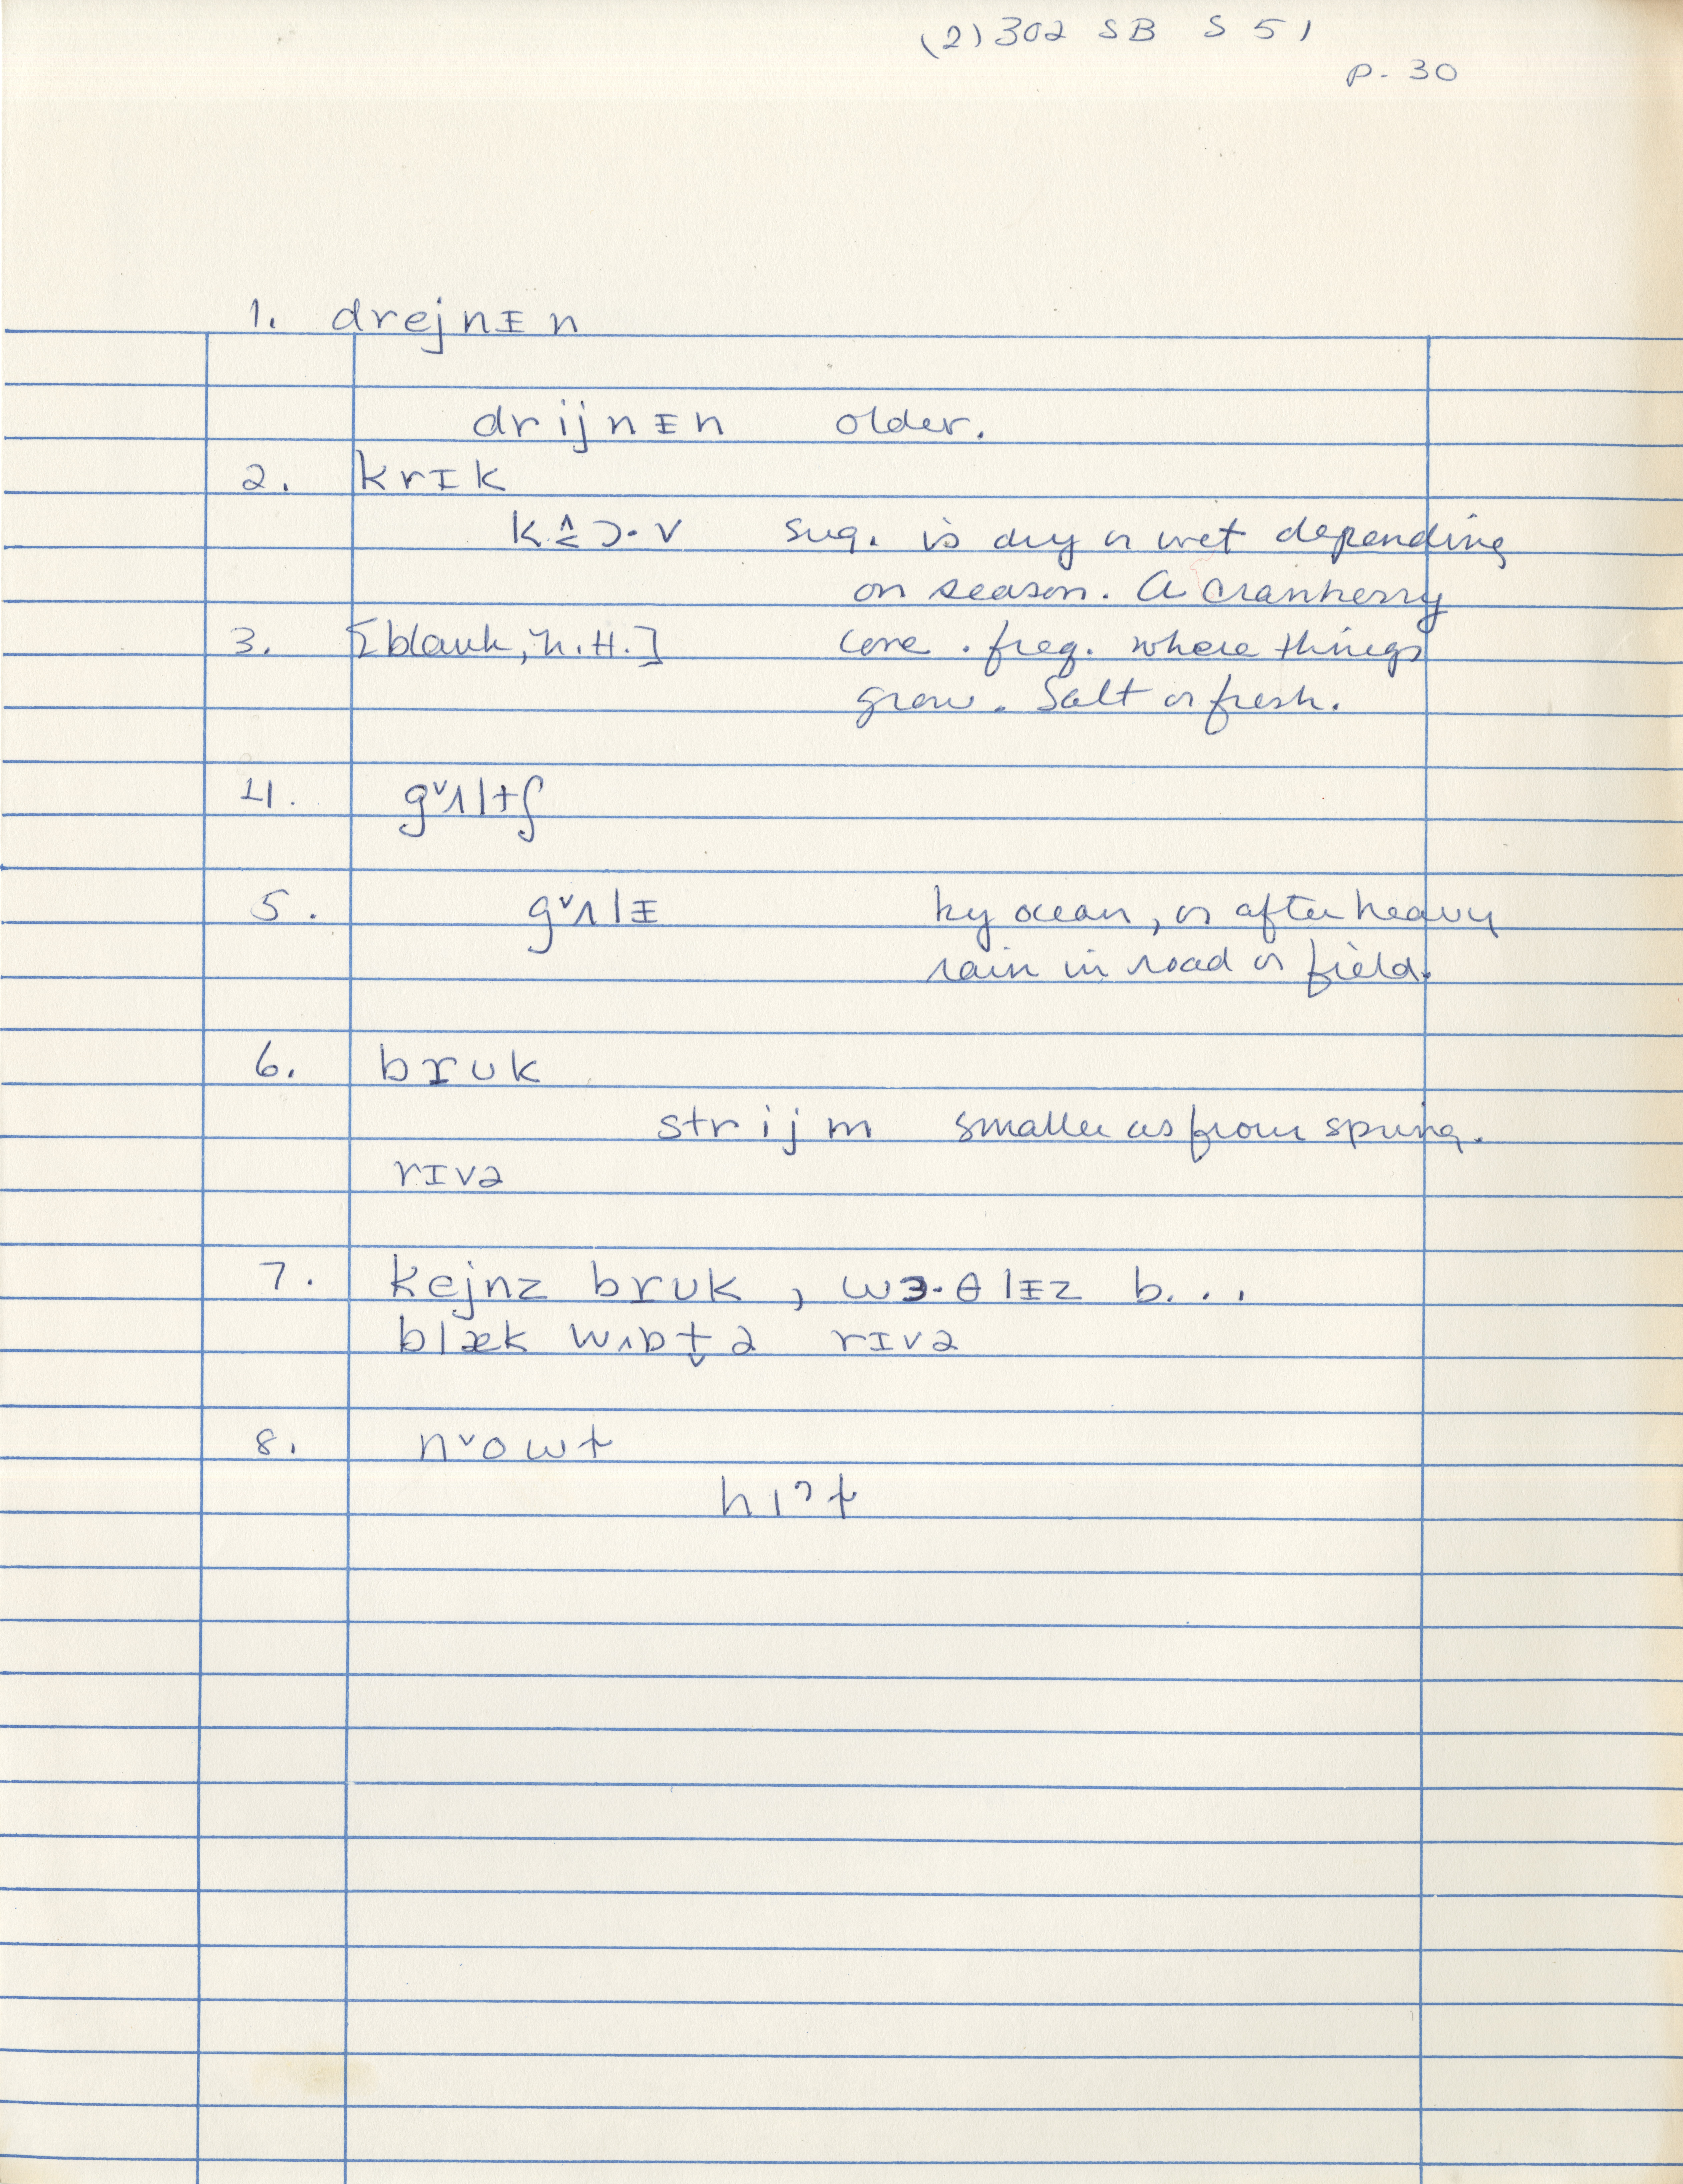 (2) 302 SB S 51
p. 30
1. drejnɪ̵n
drijnɪ̵n older.
2. krɪk
k^≤ɔ·v sug. is dry or wet depending
on season. A cranberry
3. [blank, N.H.] cove. freq. where things
grow. Salt or fresh.
4. gᵛʌltʃ
5. gᵛʌlɪ̵ by ocean, or after heavy
rain in road or field.
6. brʊk
strijm smaller as from spring.
rɪvə
7. kejnz brʊk, wɜ·θlɪ̵z b...
blæk wʌbt̬ə rɪvə
8. nᵛowt
hɪˀt